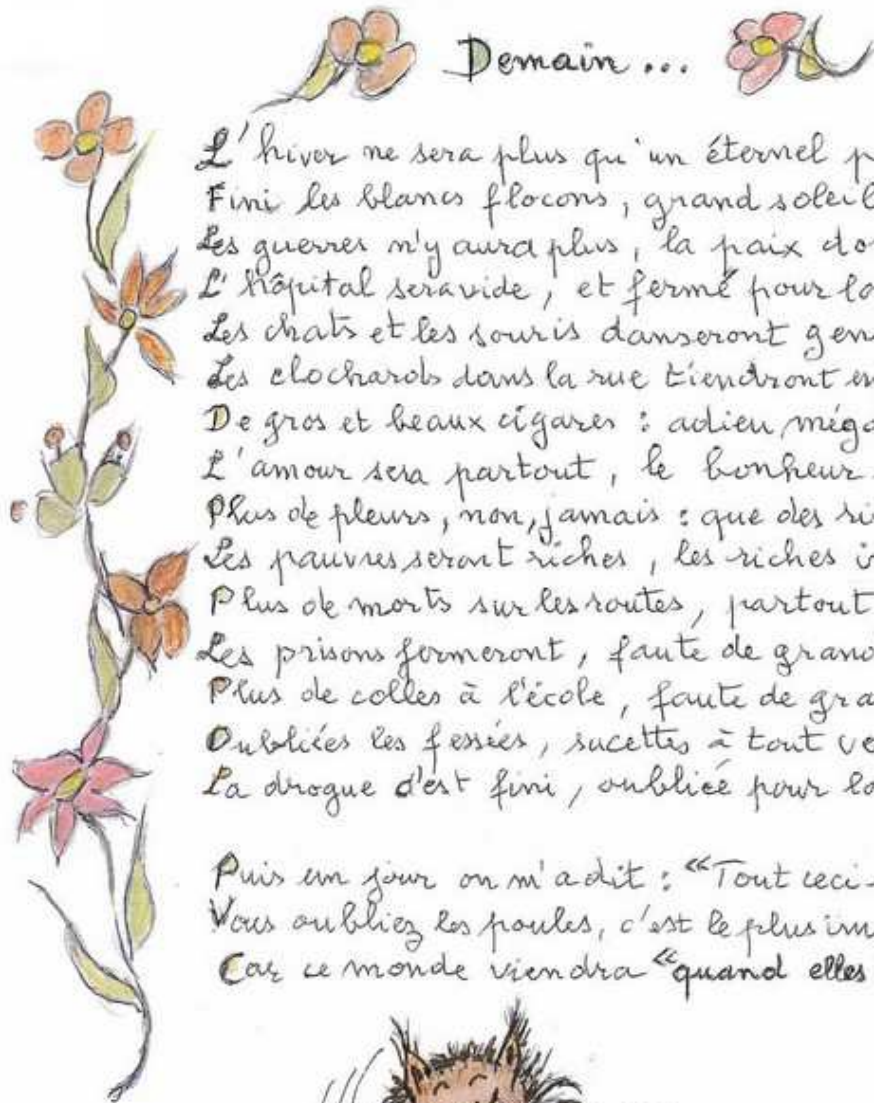 Demain...
L'hiver ne sera plus qu'un éternel p
Fini les blancs flocons, grand soleil
Les guerres n'y aura plus, la paix do
L'hôpital sera vide, et fermé pour lo
Les chats et les souris danseront gen
Les clochards dans la rue tiendront en
De gros et beaux cigares : adieu, méga
L'amour sera partout, le bonheur
Plus de pleurs, non, jamais : que des ri
Les pauvres seront riches, les riches i
Plus de morts sur les routes, partout
Les prisons fermeront, faute de grand
Plus de colles à l'école, faute de gra
Oubliées les fessées, sucettes à tout ve
La drogue c'est fini, oubliée pour lo
Puis un jour on m'a dit : "Tout ceci
Vous oubliez les poules, c'est le plus im
Car ce monde viendra "quand elles